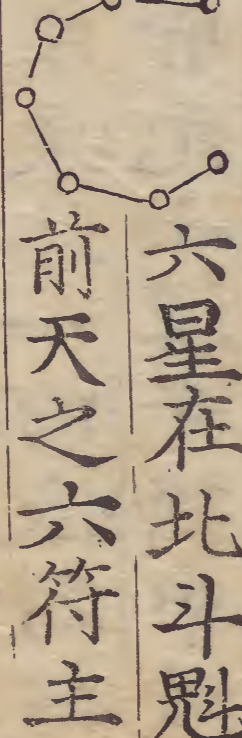 六星在北斗魁
前天之六符主